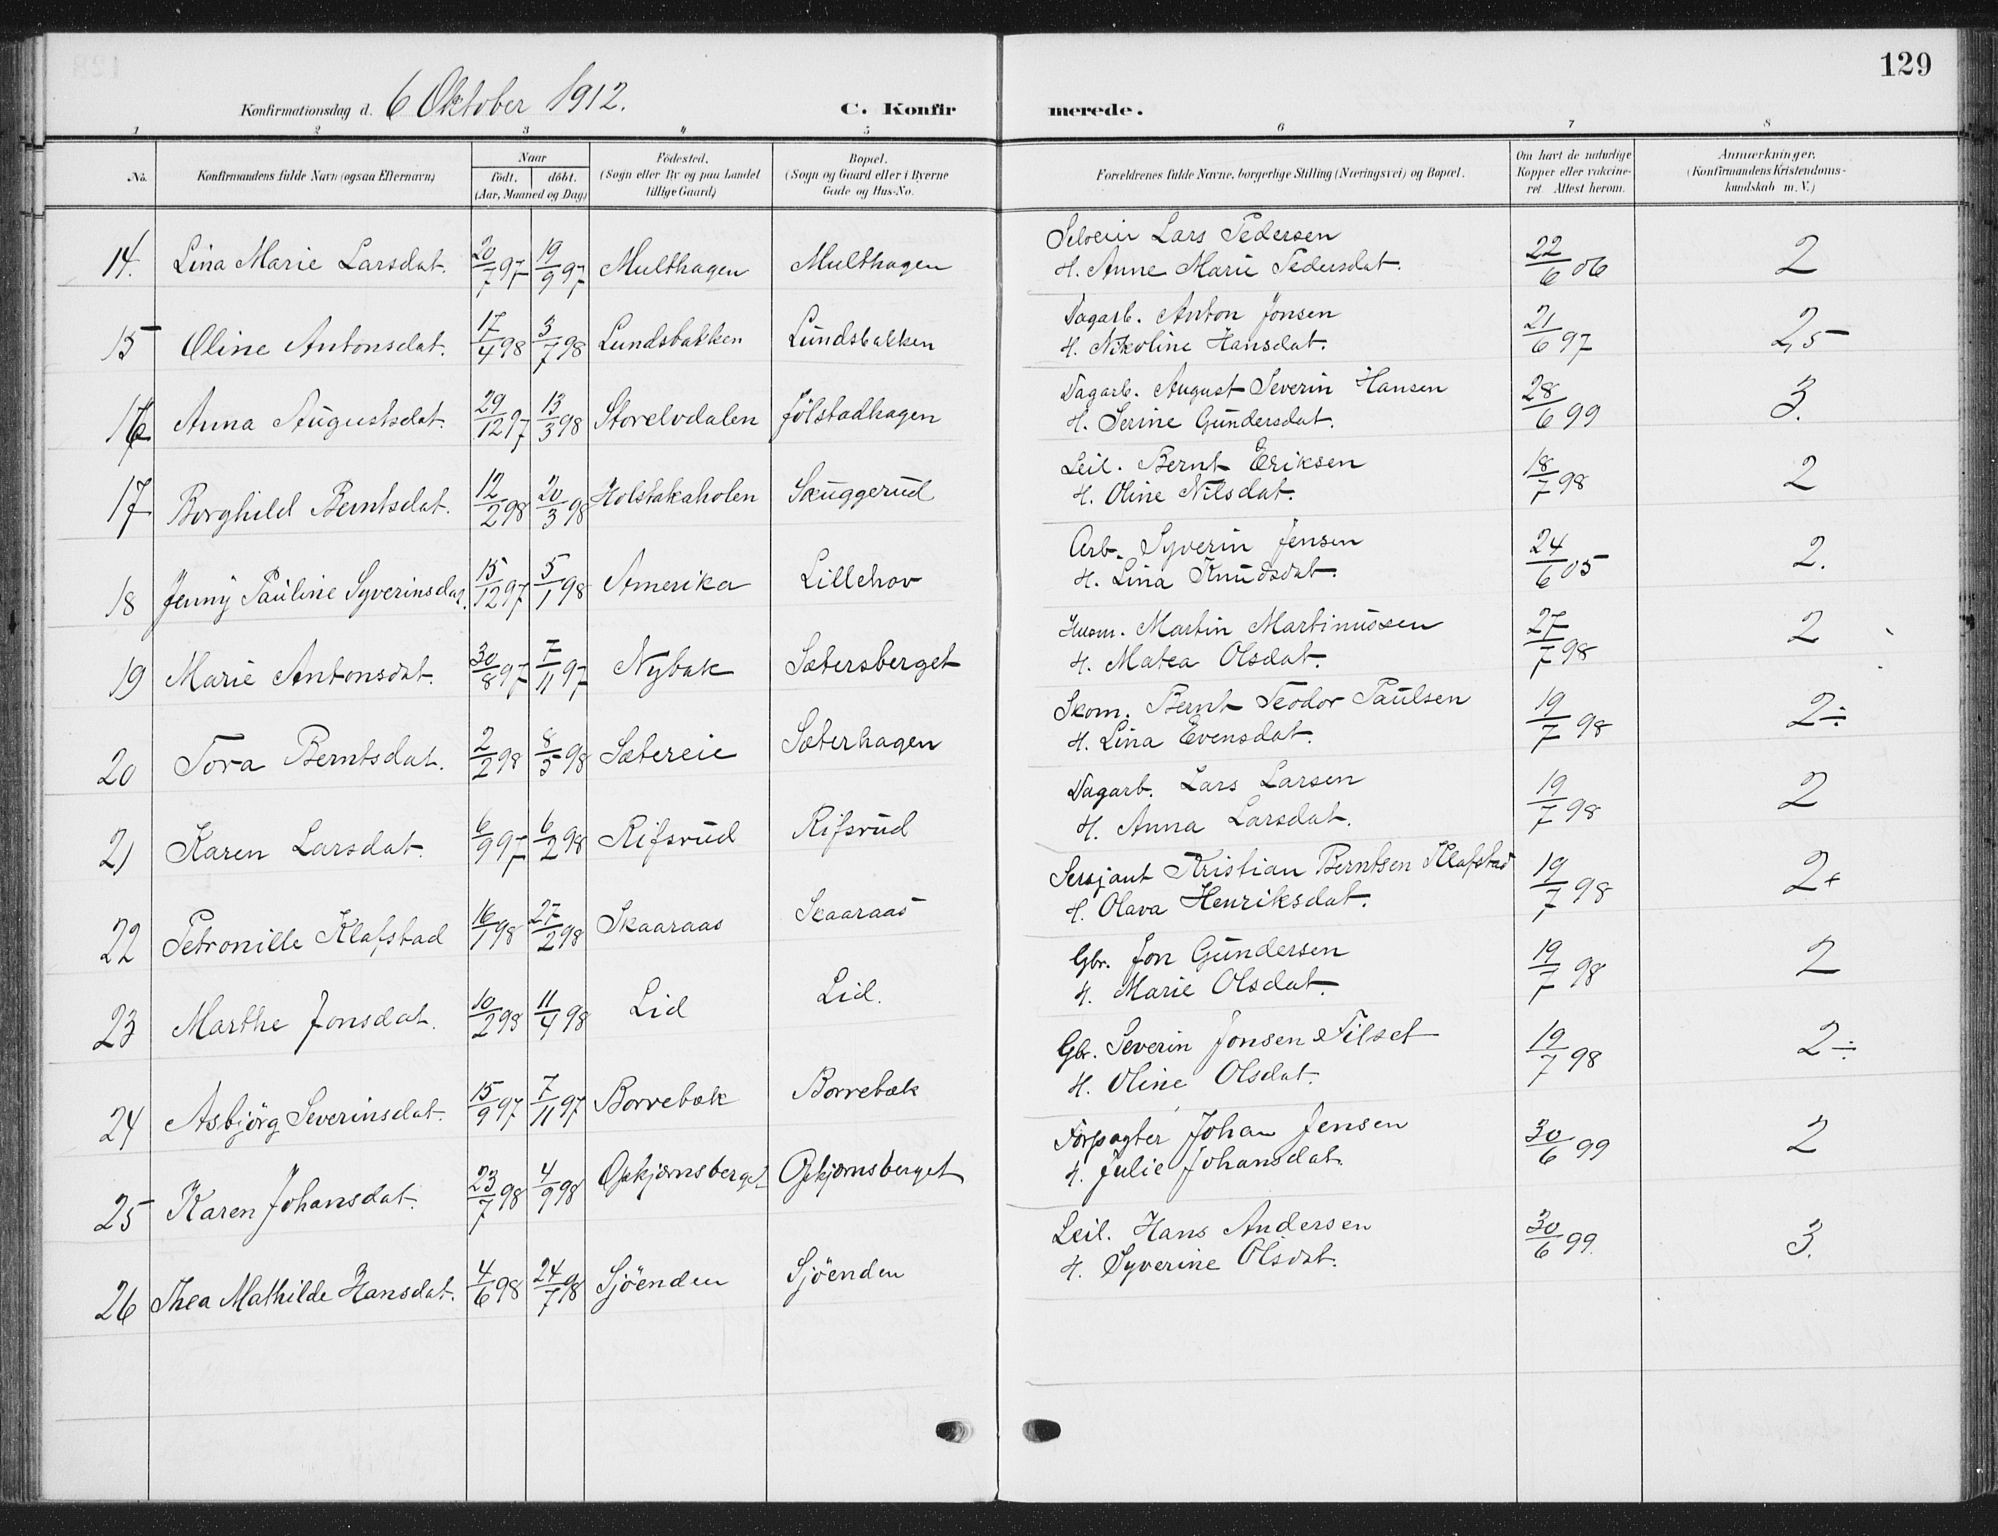 129
Konfirmationsdag d. 6 Oktober 1912. C. Konfirmerede.
1 2 3 4 5 6 7 8
No. Konfirmandens fulde Navn (ogsaa Efternavn) Naar født. døbt. (Aar, Maaned og Dag) Fødested. (Sogn eller By og paa Landet tillige Gaard) Bopæl. (Sogn og Gaard eller i Byerne Gade og Hus-No. Forældrenes fulde Navne, borgerlige Stilling (Næringsvei) og Bopæl. Om havt de naturlige Kopper eller vakcineret Attest herom. Anmærkninger. (Konfirmandens Kristendomskundskab m. V.)
14. Lina Marie Larsdat. 20/7 97 19/9 97 Multhagen Multhagen Selveier Lars Pedersen
H. Anne Marie Pedersdat. 22/6 06 2
15 Oline Antonsdat. 17/4 98 3/7 98 Lundsbakken Lundsbakken Dagarb. Anton Jonsen
H. Nikoline Hansdat. 21/6 97 2,5
16 Anna Augustsdat. 29/12 97 13/3 98 Storelvdalen Jölstadhagen Dagarb. August Severin Hansen
H. Serine Gundersdat. 28/6 99 3.
17 Borghild Berntsdat. 12/2 98 20/3 98 Holstakaholen Skuggerud Leil. Bernt Eriksen
H. Oline Nilsdat. 18/7 98 2
18 Jenny Pauline Syverinsdat. 15/12 97 5/1 98 Amerika Lillehov Arb. Syverin Jensen
H. Lina Knudsdat. 24/6 05 2.
19 Marie Antonsdat. 30/8 97 7/11 97 Nybak Sætersberget Husm. Martin Martinussen
H. Matea Olsdat. 27/7 98 2
20 Tora Berntsdat. 2/2 98 8/5 98 Sætereie Sæterhagen Skom. Bernt Teodor Paulsen
H. Lina Evensdat. 19/7 98 2÷
21 Karen Larsdat. 6/9 97 6/2 98 Rifsrud Rifsrud Dagarb. Lars Larsen
H. Anna Larsdat. 19/7 98 2
22 Petronille Klafstad 16/1 98 27/2 98 Skaaraas Skaaraas Sersjant Kristian Berntsen Klafstad
H. Olava Henriksdat. 19/7 98 2+
23 Marthe Jonsdat. 10/2 98 11/4 98 Lid Lid. Gbr. Jon Gundersen
H. Marie Olsdat. 19/7 98 2
24 Asbjörg Severinsdat. 15/9 97 7/11 97 Borrebæk Borrebæk Gbr. Severin Jonsen Filset
H. Oline Olsdat. 19/7 98 2÷
25 Karen Johansdat. 23/7 98 4/9 98 Opkjærnsberget Opkjærnsberget Forpagter Johan Jensen
H. Julie Johansdat. 30/6 99 2
26 Thea Mathilde Hansdat. 4/6 98 24/7 98 Sjöenden Sjöenden Leil. Hans Andersen
H. Syverine Olsdat. 30/6 99. 3.